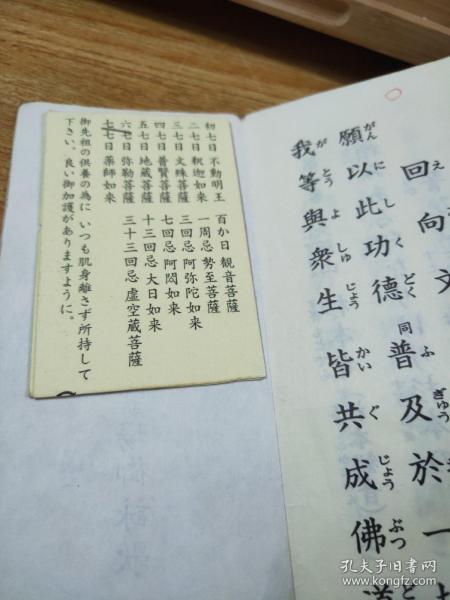 初七日 不動明王
二七日 釈迦如来
三七日 文殊菩薩
四七日 普賢菩薩
五七日 地蔵菩薩
六七日 弥勒菩薩
七七日 薬師如来
百か日 観音菩薩
一周忌 勢至菩薩
三回忌 阿弥陀如来
七回忌 阿閦如来
十三回忌 大日如来
三十三回忌 虚空蔵菩薩
御先祖の供養の為に いつも肌身離さず所持して
下さい。良い御加護がありますように。
回え向
同
願がん以に此し功く徳どく普ふ及ぎゅう於一
我が等とう與よ衆しゅ生じょう皆かい共ぐ成じょう佛ぶつ道
孔夫子旧书网
book.kongfz.com